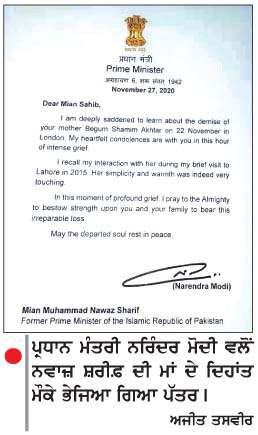 प्रधान मंत्री
Prime Minister
अग्रहायण 6, शक संवत् 1942
November 27, 2020
Dear Mian Sahib,
I am deeply saddened to learn about the demise of
your mother Begum Shamim Akhtar on 22 November in
London. My heartfelt condolences are with you in this hour
of intense grief.
I recall my interaction with her during my brief visit to
Lahore in 2015. Her simplicity and warmth was indeed very
touching.
In this moment of profound grief, I pray to the Almighty
to bestow strength upon you and your family to bear this
irreparable loss
May the departed soul rest in peace.
(Narendra Modi)
Mian Muhammad Nawaz Sharif
Former Prime Minister of the Islamic Republic of Pakistan
ਪ੍ਰਧਾਨ ਮੰਤਰੀ ਨਰਿੰਦਰ ਮੋਦੀ ਵਲੋਂ
ਨਵਾਜ਼ ਸ਼ਰੀਫ਼ ਦੀ ਮਾਂ ਦੇ ਦਿਹਾਂਤ
ਮੌਕੇ ਭੇਜਿਆ ਗਿਆ ਪੱਤਰ।
ਅਜੀਤ ਤਸਵੀਰ